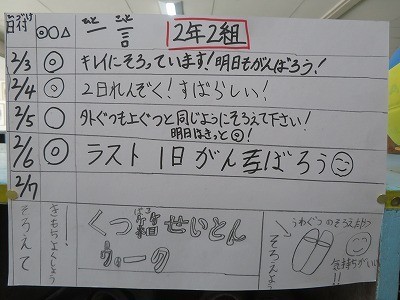 日付 ◎○△ 一言 2年2組
ひづけ
ひと こと
2/3 ◎ キレイにそろっています!明日もがんばろう!
2/4 ◎ 2日れんぞく!すばらしい!
2/5 ○ 外ぐつも上ぐつと同じようにそろえて下さい!
明日はきっと◎!
2/6 ◎ ラスト1日がんばろう
2/7
そろえて
きもちよくしよう
くつ箱せいとん
ばこ
ウィーク
うわぐつのそろえかた
そろえよう
気持ちがいい
!!